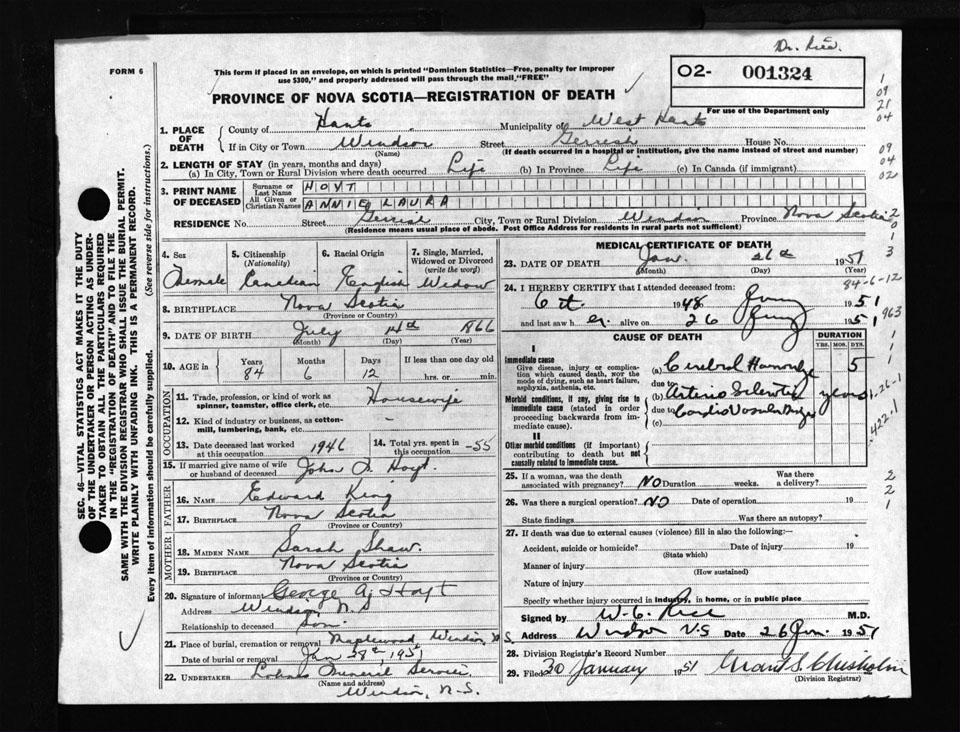 Dr. Rice.
FORM 6
This form if placed in an envelope, on which is printed "Dominion Statistics—Free, penalty for improper
use $300," and properly addressed will pass through the mail, "FREE"
02- 001324
For use of the Department only
PROVINCE OF NOVA SCOTIA—REGISTRATION OF DEATH
1. PLACE OF DEATH
County of Hants Municipality of West Hants
If in City or Town Windsor Street House No.
(Name) (If death occurred in a hospital or institution, give the name instead of street and number)
2. LENGTH OF STAY (in years, months and days)
(a) In City, Town or Rural Division where death occurred Life (b) In Province Life (c) In Canada (if immigrant)
3. PRINT NAME OF DECEASED
Surname or Last Name HOYT
All Given or Christian Names ANNIE LAURA
RESIDENCE No. Street City, Town or Rural Division Windsor Province Nova Scotia
(Residence means usual place of abode. Post Office Address for residents in rural parts not sufficient)
4. Sex Female
5. Citizenship (Nationality) Canadian
6. Racial Origin English
7. Single, Married, Widowed or Divorced (write the word) Widow
8. BIRTHPLACE Nova Scotia
(Province or Country)
9. DATE OF BIRTH July 14th 1866
(Month) (Day) (Year)
10. AGE in Years Months Days If less than one day old
84 6 12 hrs. or min.
OCCUPATION
11. Trade, profession, or kind of work as spinner, teamster, office clerk, etc. Housewife
12. Kind of industry or business, as cotton-mill, lumbering, bank, etc. -
13. Date deceased last worked at this occupation 1946
14. Total yrs. spent in this occupation -55
15. If married give name of wife or husband of deceased John D. Hoyt.
FATHER
16. NAME Edward King
17. BIRTHPLACE Nova Scotia
(Province or Country)
MOTHER
18. MAIDEN NAME Sarah Shaw.
19. BIRTHPLACE Nova Scotia
(Province or Country)
20. Signature of informant George A. Hoyt
Address Windsor, N.S
Relationship to deceased Son.
21. Place of burial, cremation or removal Maplewood Windsor N.S.
Date of burial or removal Jan 28th, 1951
22. UNDERTAKER Funeral Service
(Name and address)
Windsor, N.S.
MEDICAL CERTIFICATE OF DEATH
23. DATE OF DEATH Jan. 26th 1951
(Month) (Day) (Year)
84-6-12
24. I HEREBY CERTIFY that I attended deceased from:
Oct. 1948 1951
and last saw her alive on 26 1951
CAUSE OF DEATH
DURATION
YRS. MOS. DYS.
I
Immediate cause
Give disease, injury or complication which caused death, NOT the mode of dying, such as heart failure, asphyxia, asthenia, etc.
(a) Cerebral 5
due to
Morbid conditions, if any, giving rise to immediate cause (stated in order proceeding backwards from immediate cause).
(b) Arterio years
due to
(c)
II
Other morbid conditions (if important) contributing to death but not causally related to immediate cause.
25. If a woman, was the death associated with pregnancy? NO Duration weeks. Was there a delivery?
26. Was there a surgical operation? NO Date of operation 19
State findings Was there an autopsy?
27. If death was due to external causes (violence) fill in also the following:
Accident, suicide or homicide? Date of injury 19
(State which)
Manner of injury
(How sustained)
Nature of injury
Specify whether injury occurred in industry, in home, or in public place
Signed by W. C. Rice M.D.
Address Windsor N.S Date 26 Jan. 1951
28. Division Registrar's Record Number
29. Filed 30 January 1951 Grant S. Chisholm
(Division Registrar)
SEC. 46—VITAL STATISTICS ACT MAKES IT THE DUTY
OF THE UNDERTAKER OR PERSON ACTING AS UNDER-
TAKER TO OBTAIN ALL THE PARTICULARS REQUIRED
IN THE "REGISTRATION OF DEATH" AND TO FILE THE
SAME WITH THE DIVISION REGISTRAR WHO SHALL ISSUE THE BURIAL PERMIT.
WRITE PLAINLY WITH UNFADING INK. THIS IS A PERMANENT RECORD.
Every item of information should be carefully supplied. (See reverse side for instructions.)
1
09
21
04
09
04
02
2
0
1
3
963
1
1
1
2
2
1